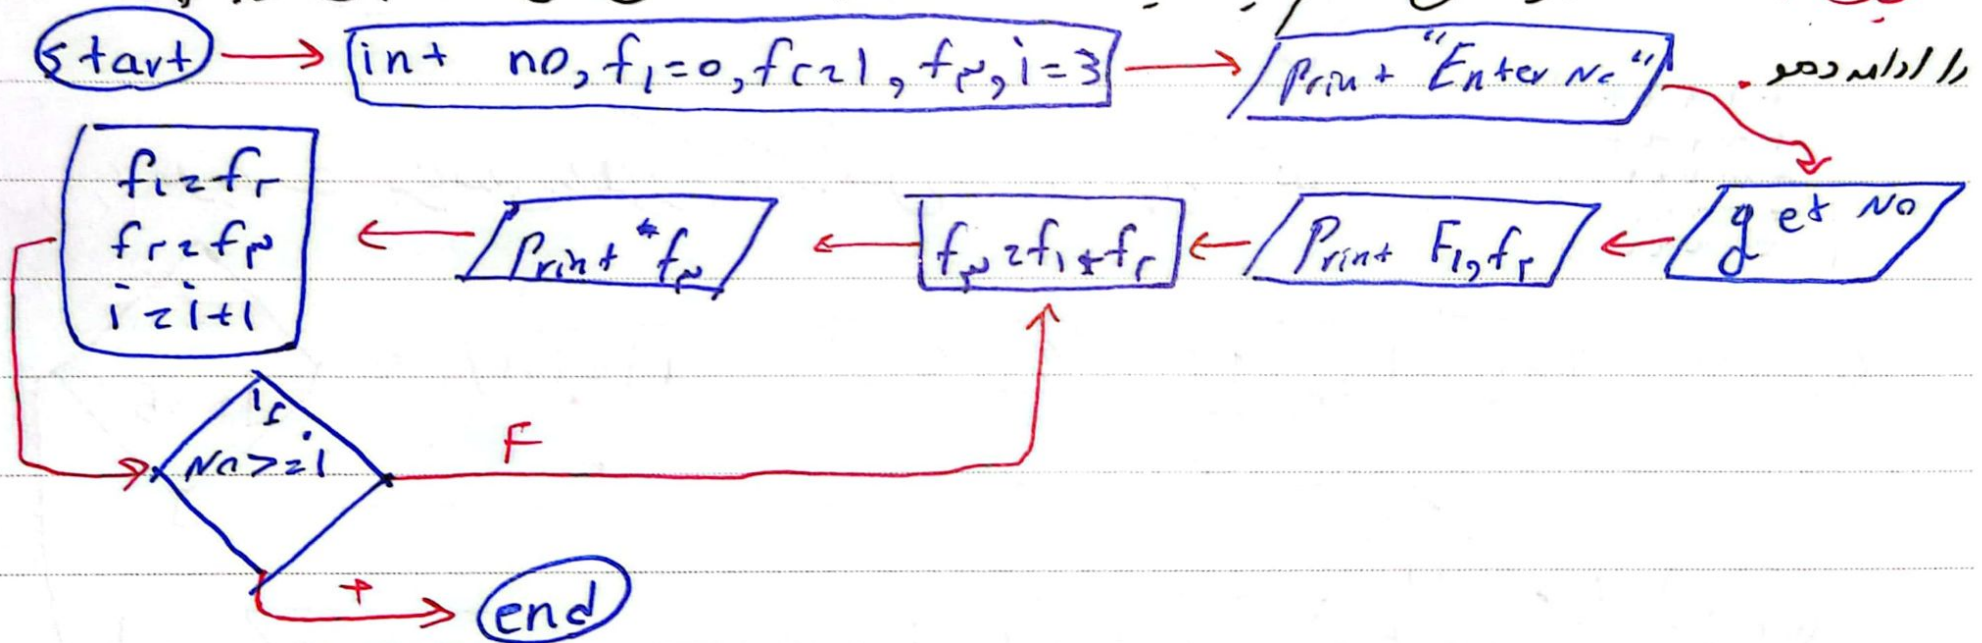 start
int no, f۱=0, f۲=1, f۳, i=3
Print "Enter No"
را ادامه دهد.
get No
Print F۱, f۲
f۳=f۱+f۲
Print "f۳
f۱=f۲
f۲=f۳
i=i+1
if
No>=i
F
+
end